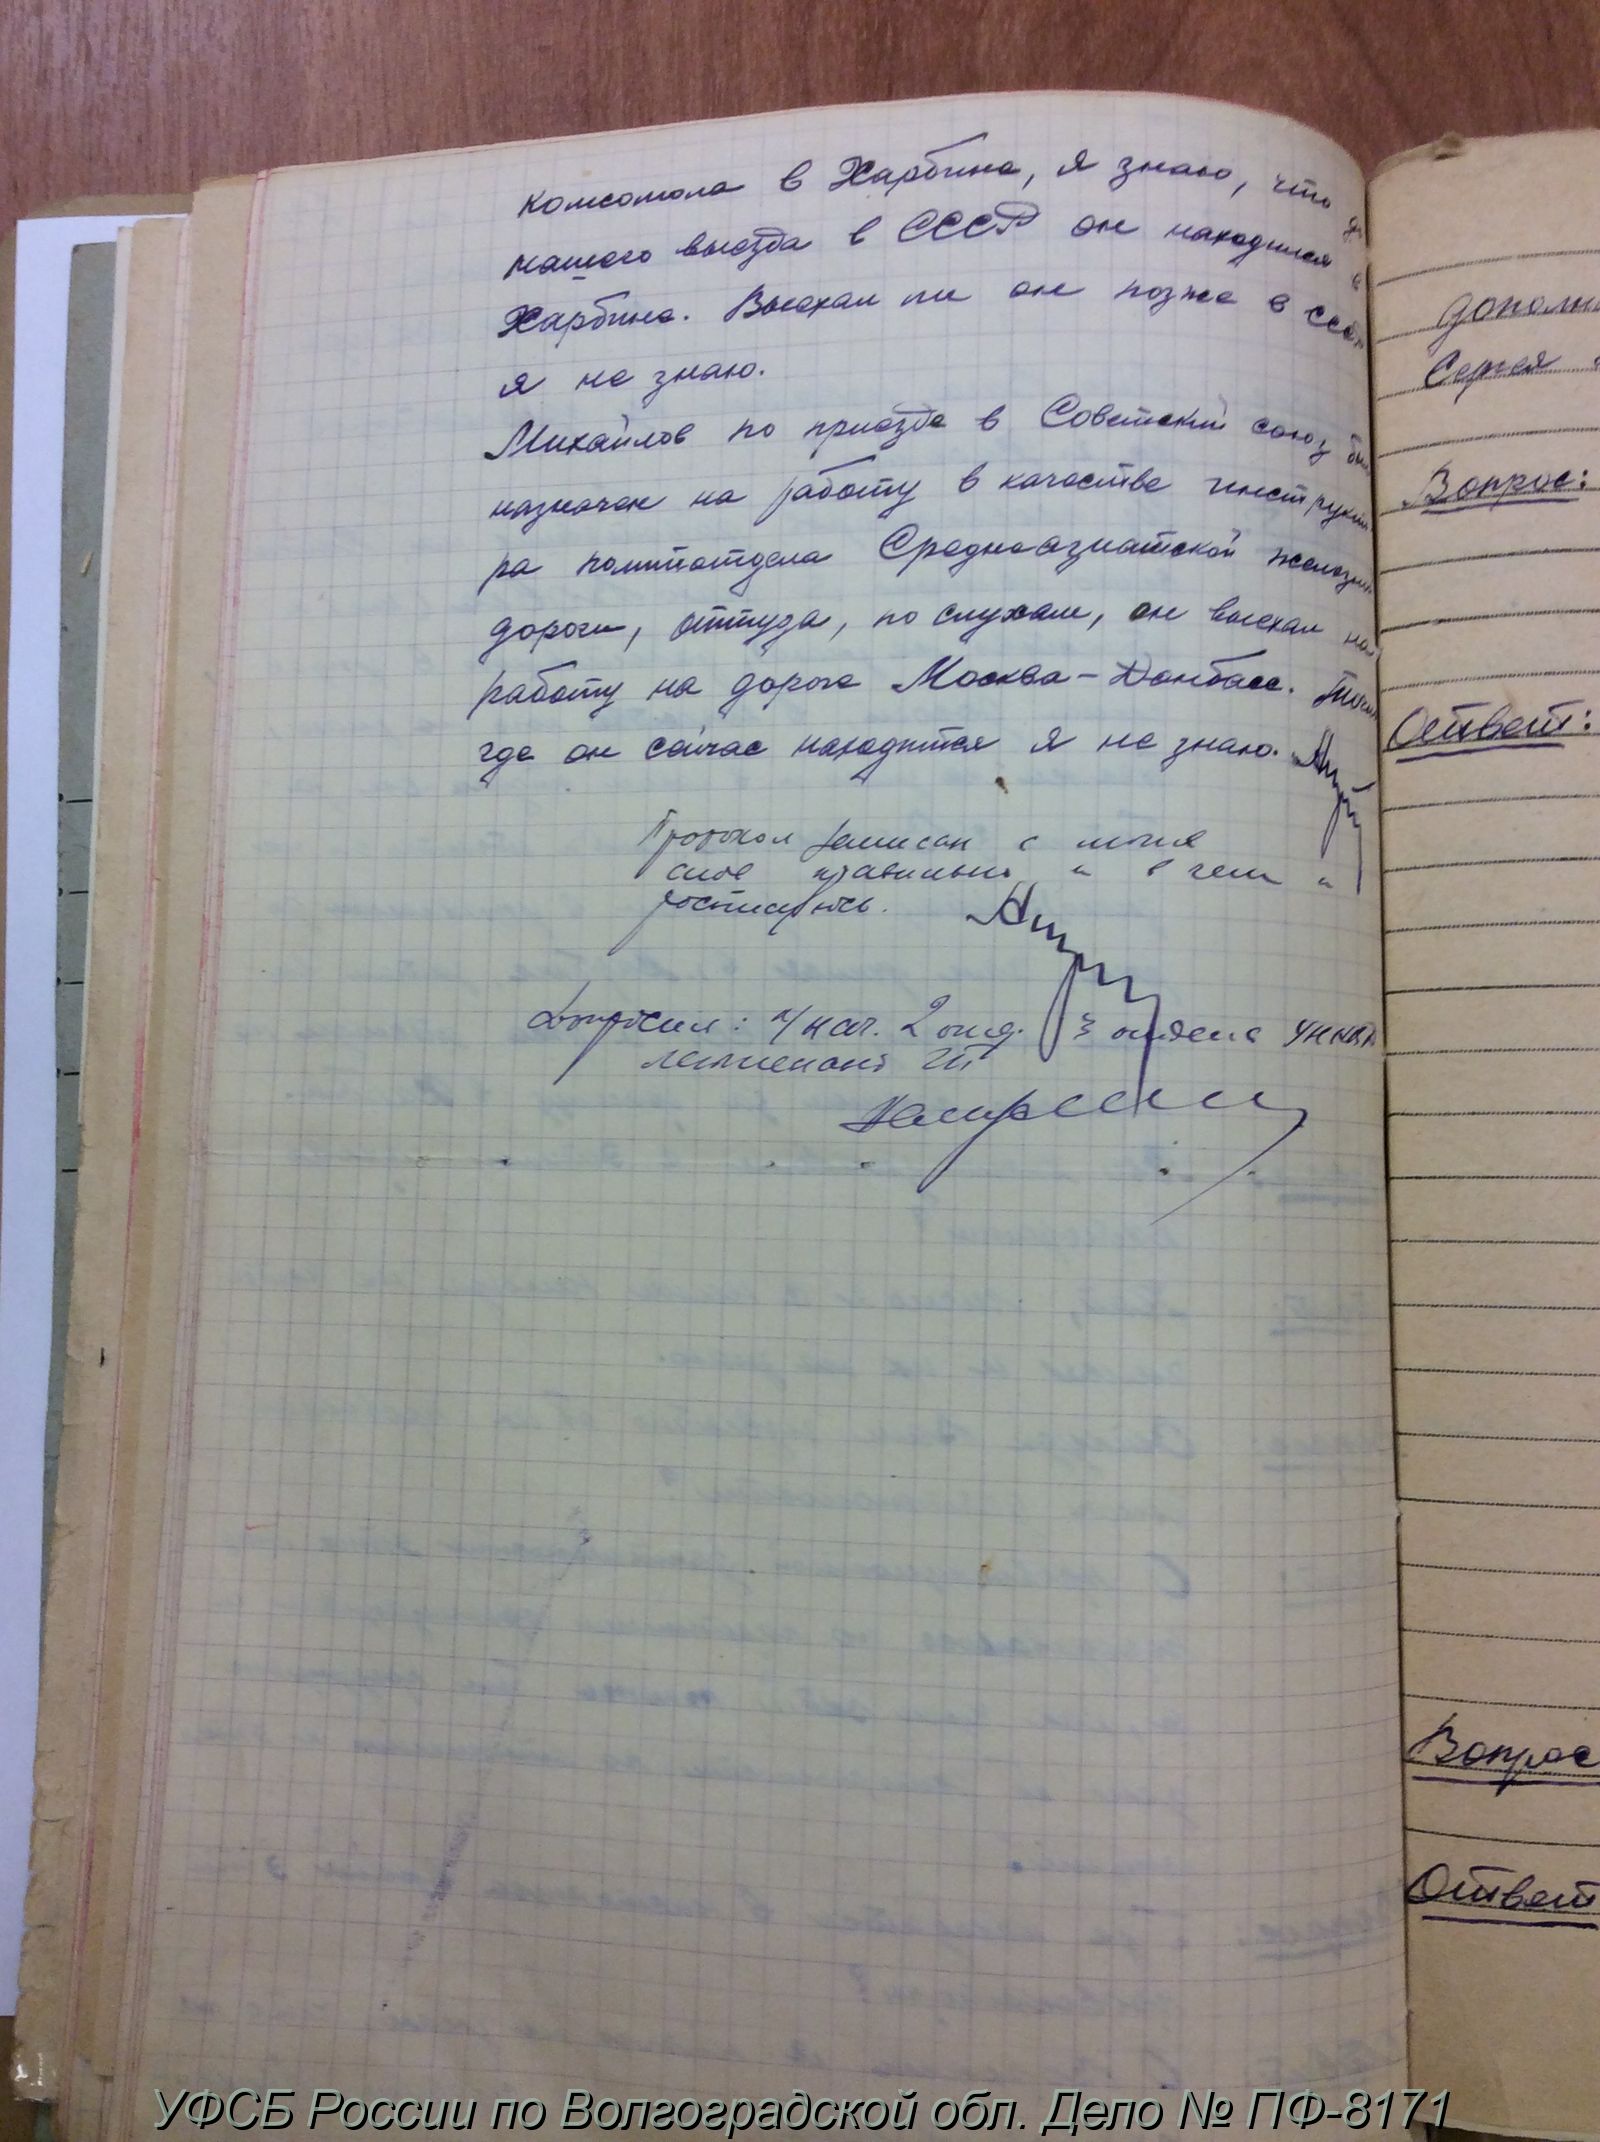 комсомола в Харбине, я знаю, что до
нашего выезда в СССР он находился в
Харбине. Выехал ли он позже в СССР
я не знаю.
Михайлов по приезде в Советский союз был
назначен на работу в качестве инструкто
ра политотдела Среднеазиатской железной
дороги, оттуда, по слухам, он выехал на
работу на дороге Москва-Донбасс. Точно
где он сейчас находится я не знаю.
Протокол записан с моих
слов правильно в чем и
расписуюсь.
Допросил: нач. 2 отд. 3 отдела УНКВД
лейтенант ГБ
дополни
Сергея
Вопрос:
Ответ:
Вопрос
Ответ
УФСБ России по Волгоградской обл. Дело № ПФ-8171